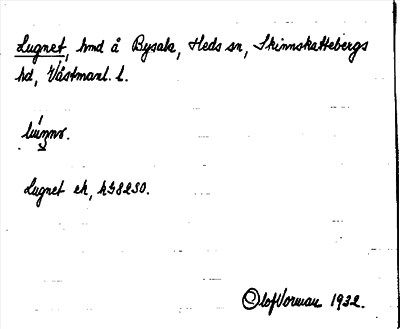 Lugnet, hmd å Bysala, Heds sn, Skinnskattebergs
hd, Västmanl. l.
Lugnet ek,
Olof Vorman 1932.